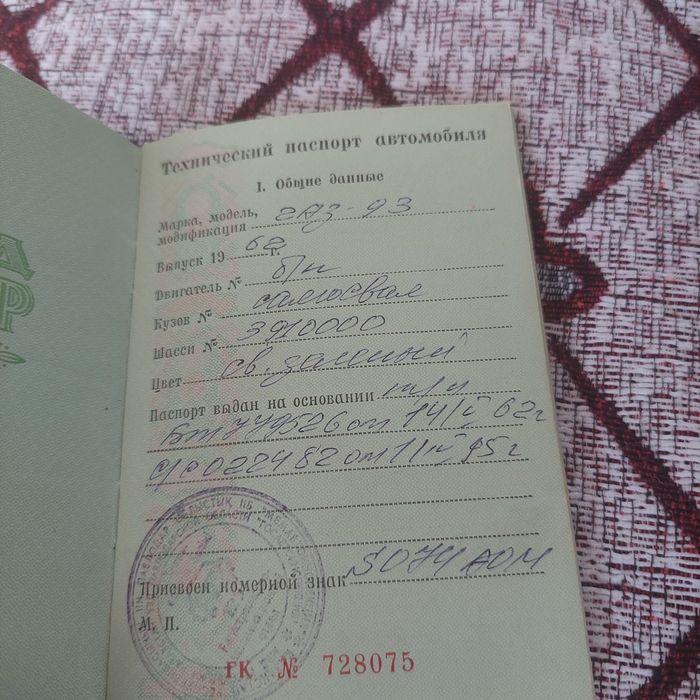 Технический паспорт автомобиля
I. Общие данные
Марка, модель, модификация ГАЗ-93
Выпуск 19 62 г.
Двигатель № б/н
Кузов № самосвал
Шасси № 390000
Цвет св. зеленый
Паспорт выдан на основании
749526 от 14/ 62г
022482 от 11/ 95г
Присвоен номерной знак S074AOM
М. П.
ГК № 728075